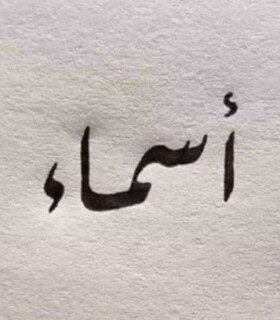 أسماء